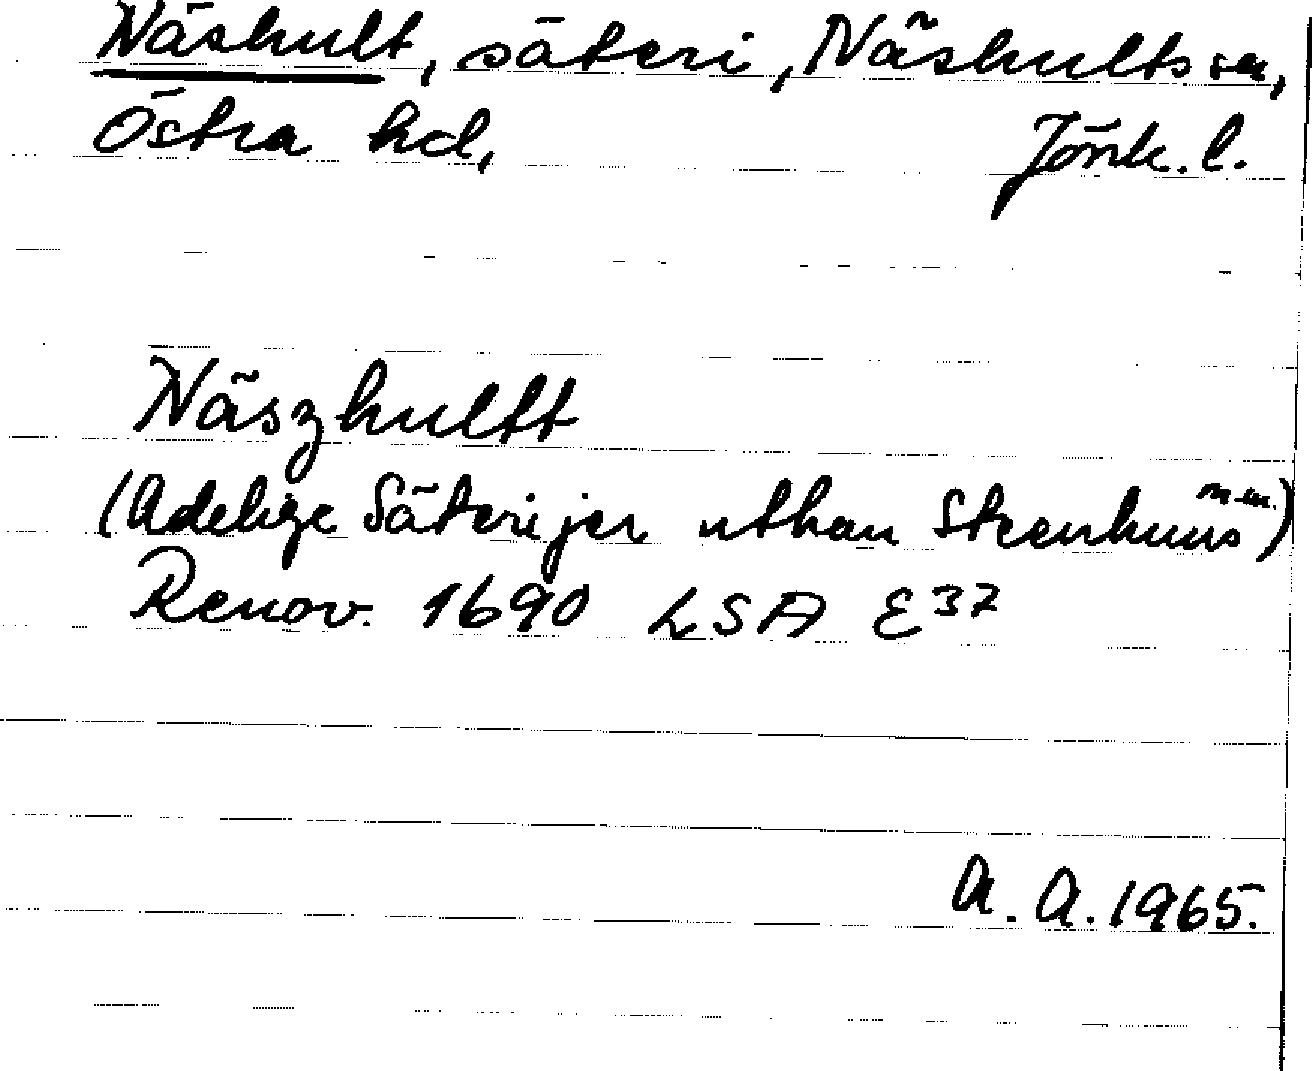 Näshult, säteri, Näshults sn,
Östra hd, Jönk. l.
Näszhultt
(Adelige Säterijer uthan Steenhuus m.m.)
Renov. 1690 LSA E37
A. A. 1965.